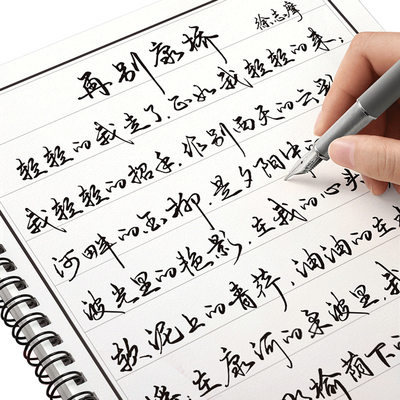 再别康桥
徐志摩
轻轻的我走了,正如我轻轻的来,
我轻轻的招手,作别西天的云彩
河畔的金柳,是夕阳中
波光里的艳影,在我的心头
软泥上的青荇,油油的在
在康河的柔波里,我
榆荫下